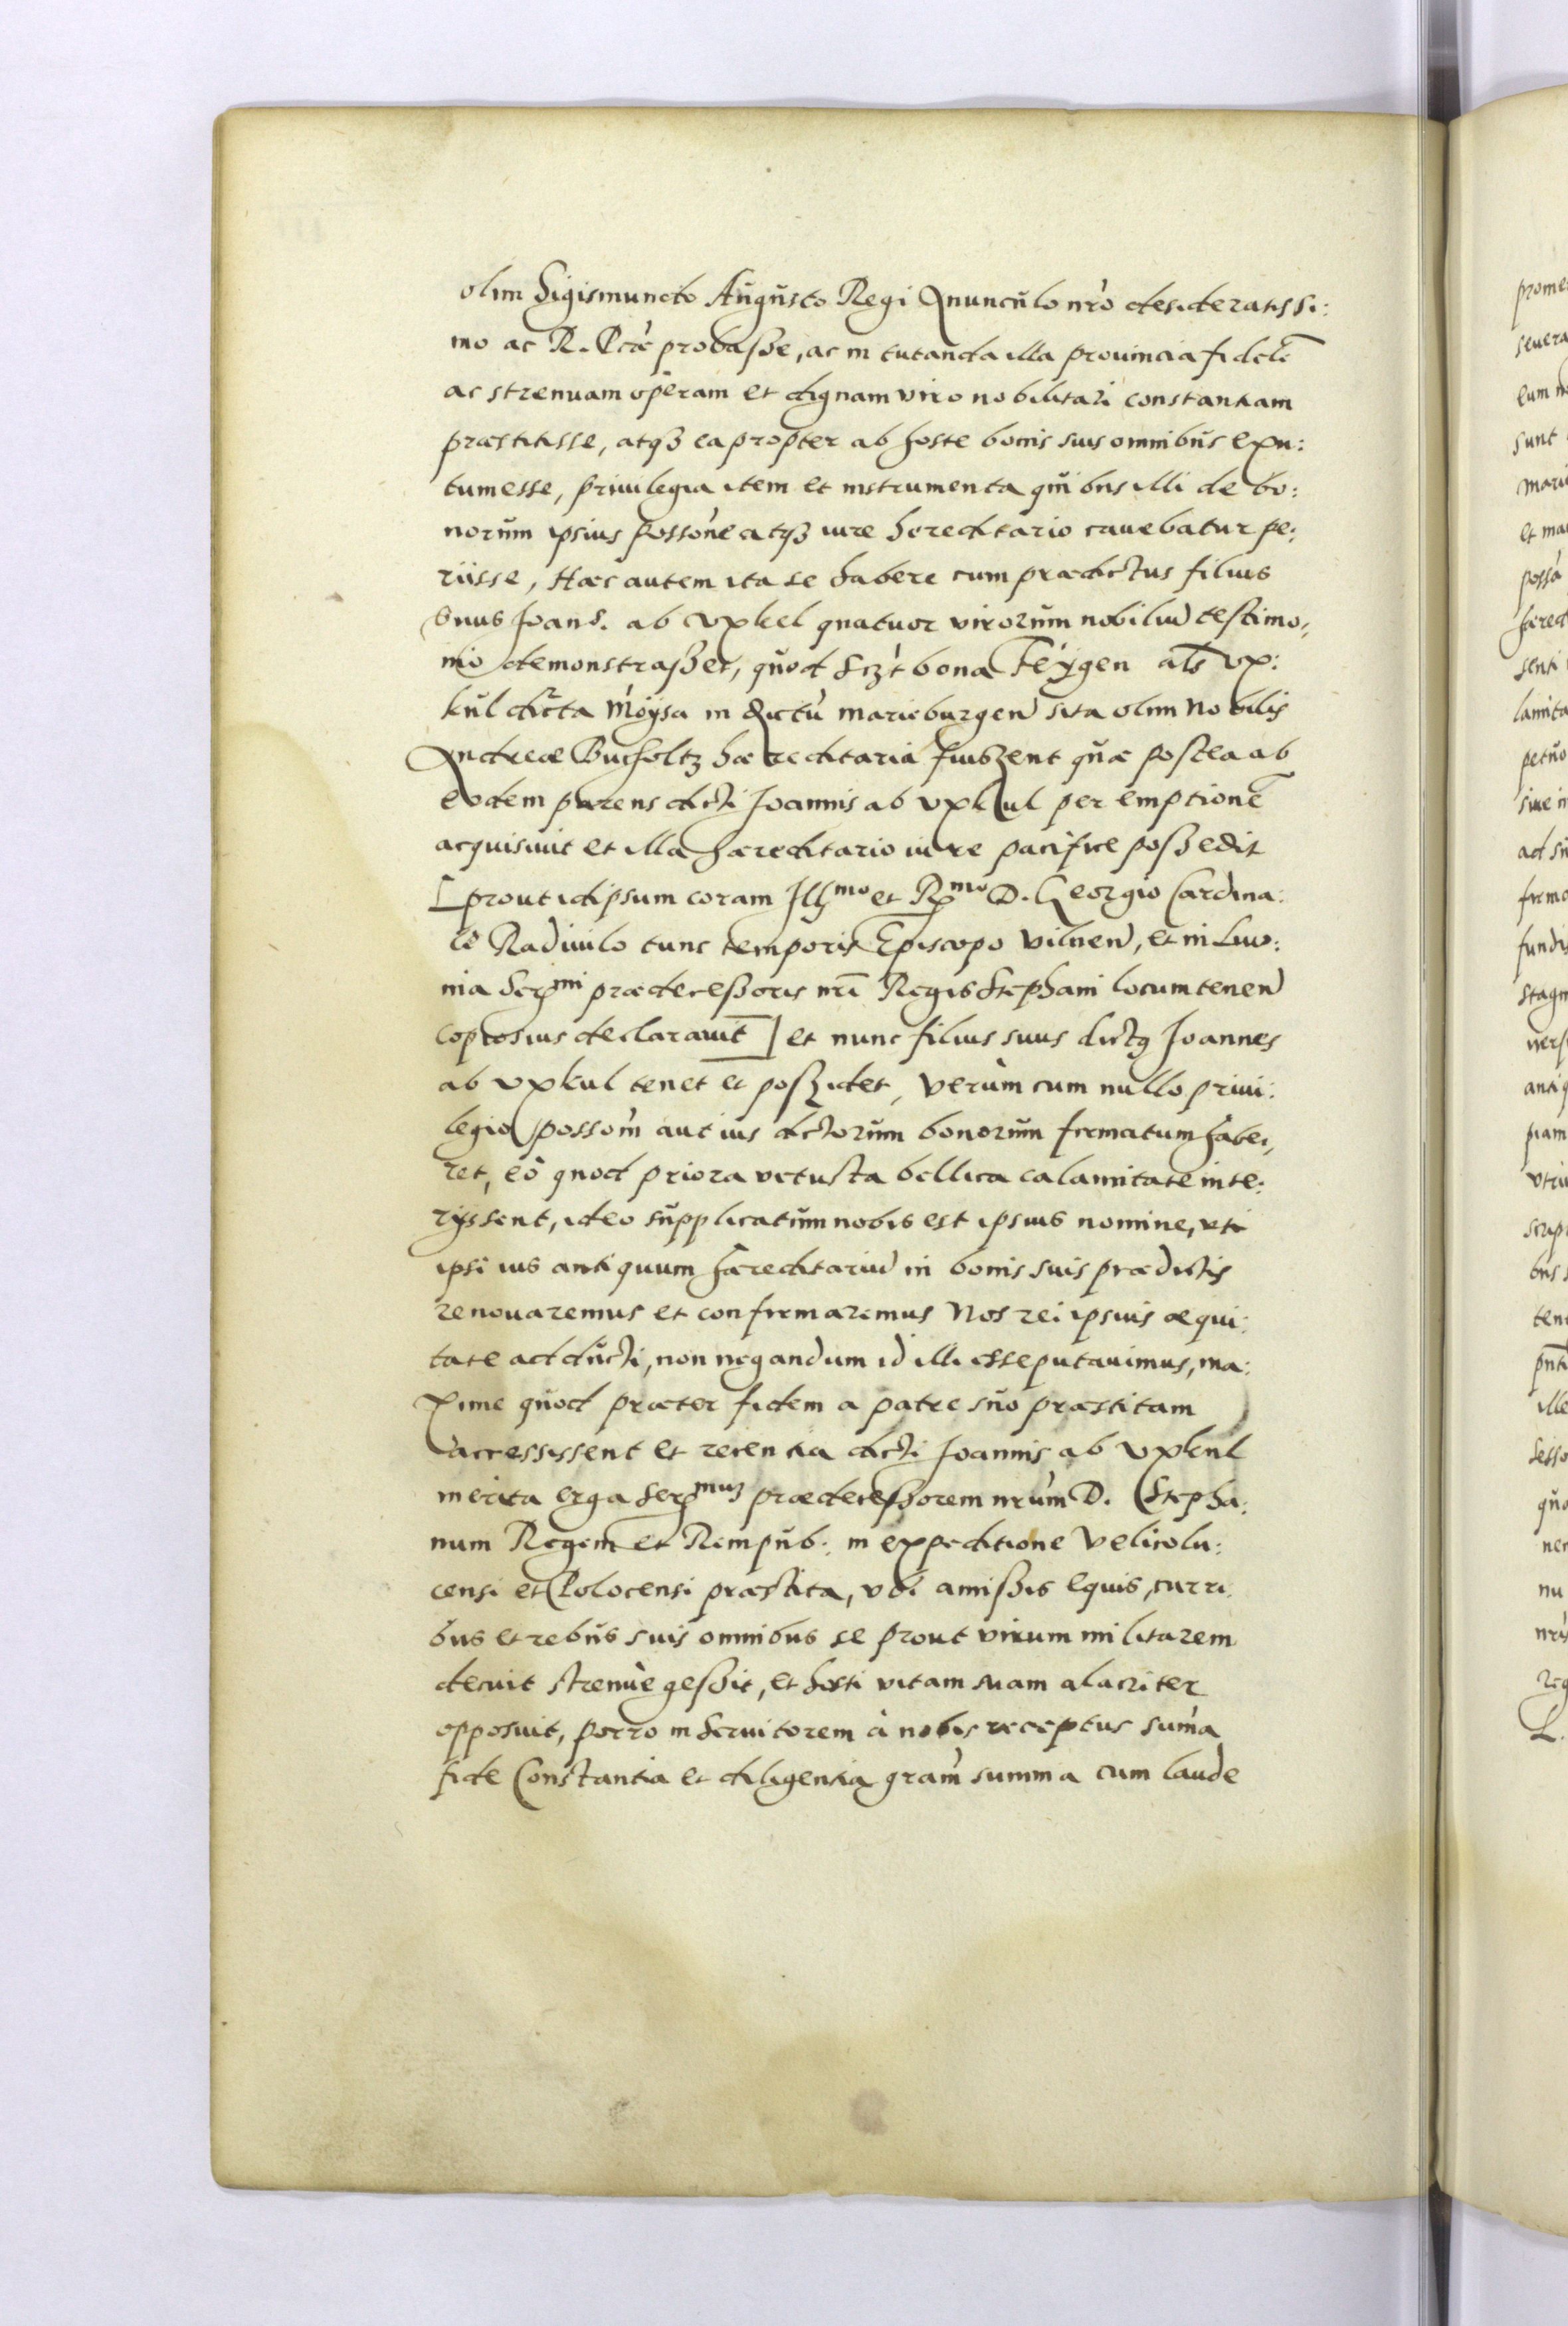 olim Sigismundo Augusto Regi Avunculo nr̃o desideratissi:
mo ac R. Pcæ probasse, ac in tutanda illa prouincia fidelē
ac strenuam operam et dignam viro nobilitari constantiam
præstitisse, atqȝ eapropter ab hoste bonis suis omnibus exu:
tum esse, priuilegia item et instrumenta quibus illi de bo:
norum ipsius posso͂ne atqȝ iure hereditario cauebatur pe:
riisse, Hæc autem ita se habere cum prædictus filius
suus Joan͂s. ab Vxkel quatuor virorum nobiliu͂ testimo:
nio demonstrasset, quod scz͂t bona Feÿgen al͂s Vx:
kul dicta Moysa in d͂rictu͂ marieburgen͂ sita olim Nobilis
Andreæ Bucholtz hæreditaria fuissent quæ postea ab
eodem parens dicti Joannis ab Vxkul per emptionē
acquisiuit et illa hæreditario iure pacifice possedit
[prout idipsum coram Illmo et Rmo D. Georgio Cardina:
le Radiuilo tunc temporis Episcopo Vilnen͂, et in Liuo:
nia Sermi prædecessoris nr̄i Regis Stephani locumtenen͂
copiosius declarauit] et nunc filius suus dictꝯ Joannes
ab Vxkul tenet et possidet, Verùm cum nullo priui:
legio posso͂m aut ius dictorum bonorum firmatum habe:
ret, eò quod priora vetusta bellica calamitate inte:
rijssent, ideo supplicatum nobis est ipsius nomine, uti
ipsi ius antiquum hæreditariu͂ in bonis suis prædictis
renouaremus et confirmaremus Nos rei ipsius æqui:
tate adducti, non negandum id illi esse putauimus, ma:
xime quod præter fidem a patre suo præstitam
accessissent et recentia dicti Joannis ab Vxkul
merita erga Sermuȝ prædecessorem nr̃um D. Stepha:
num Regem et Rempub: in expeditione Velicolu:
censi et Polocensi præstita, vbi amissis equis, curri
bus et rebus suis omnibus se prout virum militarem
decuit strenuè gessit, et hosti vitam suam alacriter
opposuit, porro in seruitorem à nobis receptus sum͂a
fide Constantia et diligentia gram͂ summa cum laude